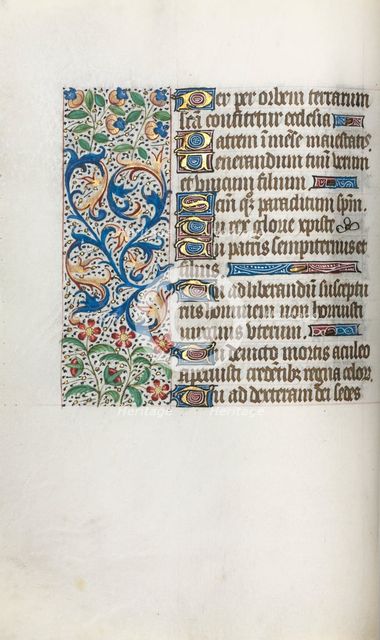 Te per orbem terrarum
sctā confitetur ecclesia
Patrem īmēse maiestatis
Venerandum tuū verum
et unicum filium
Sanctū q̄ꝫ paraclitum spm̄
Tu rex glorie xpiste
Tu patris sempiternus es
filius
Tu ad liberandū susceptu
rus hominem non horruisti
virginis uterum
Tu devicto mortis aculeo
Aperuisti credentibꝫ regna celoꝝ
Tu ad dexteram dei sedes
Heritage Heritage